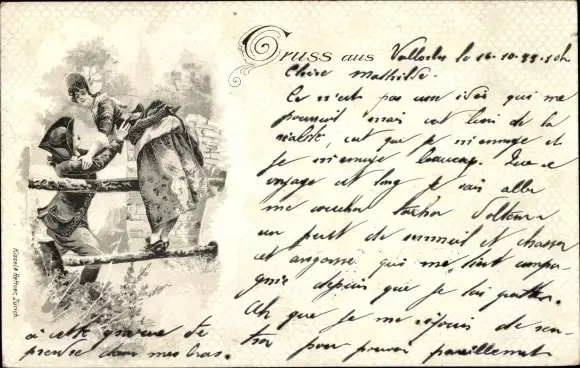 Gruss aus Vallorbes le 16.10.99. 10h
Chère Mathilde.
Ce n'est pas une idée qui me
poursuit mais cet loin de la
réalité, cet que je m'ennuye et
je m'ennuye beaucoup. Que ce
voyage est long je vais aller
me coucher tacher d'obtenir
un peut de sommeil et chasser
cet angoisse qui me tient compa-
gnie depuis que je t'ai quittée.
Ah que je me réjouis de ren-
trer pour pouvoir pareillement
à cette gravure te
prendre dans mes bras.
Kissel & Pettner, Zürich